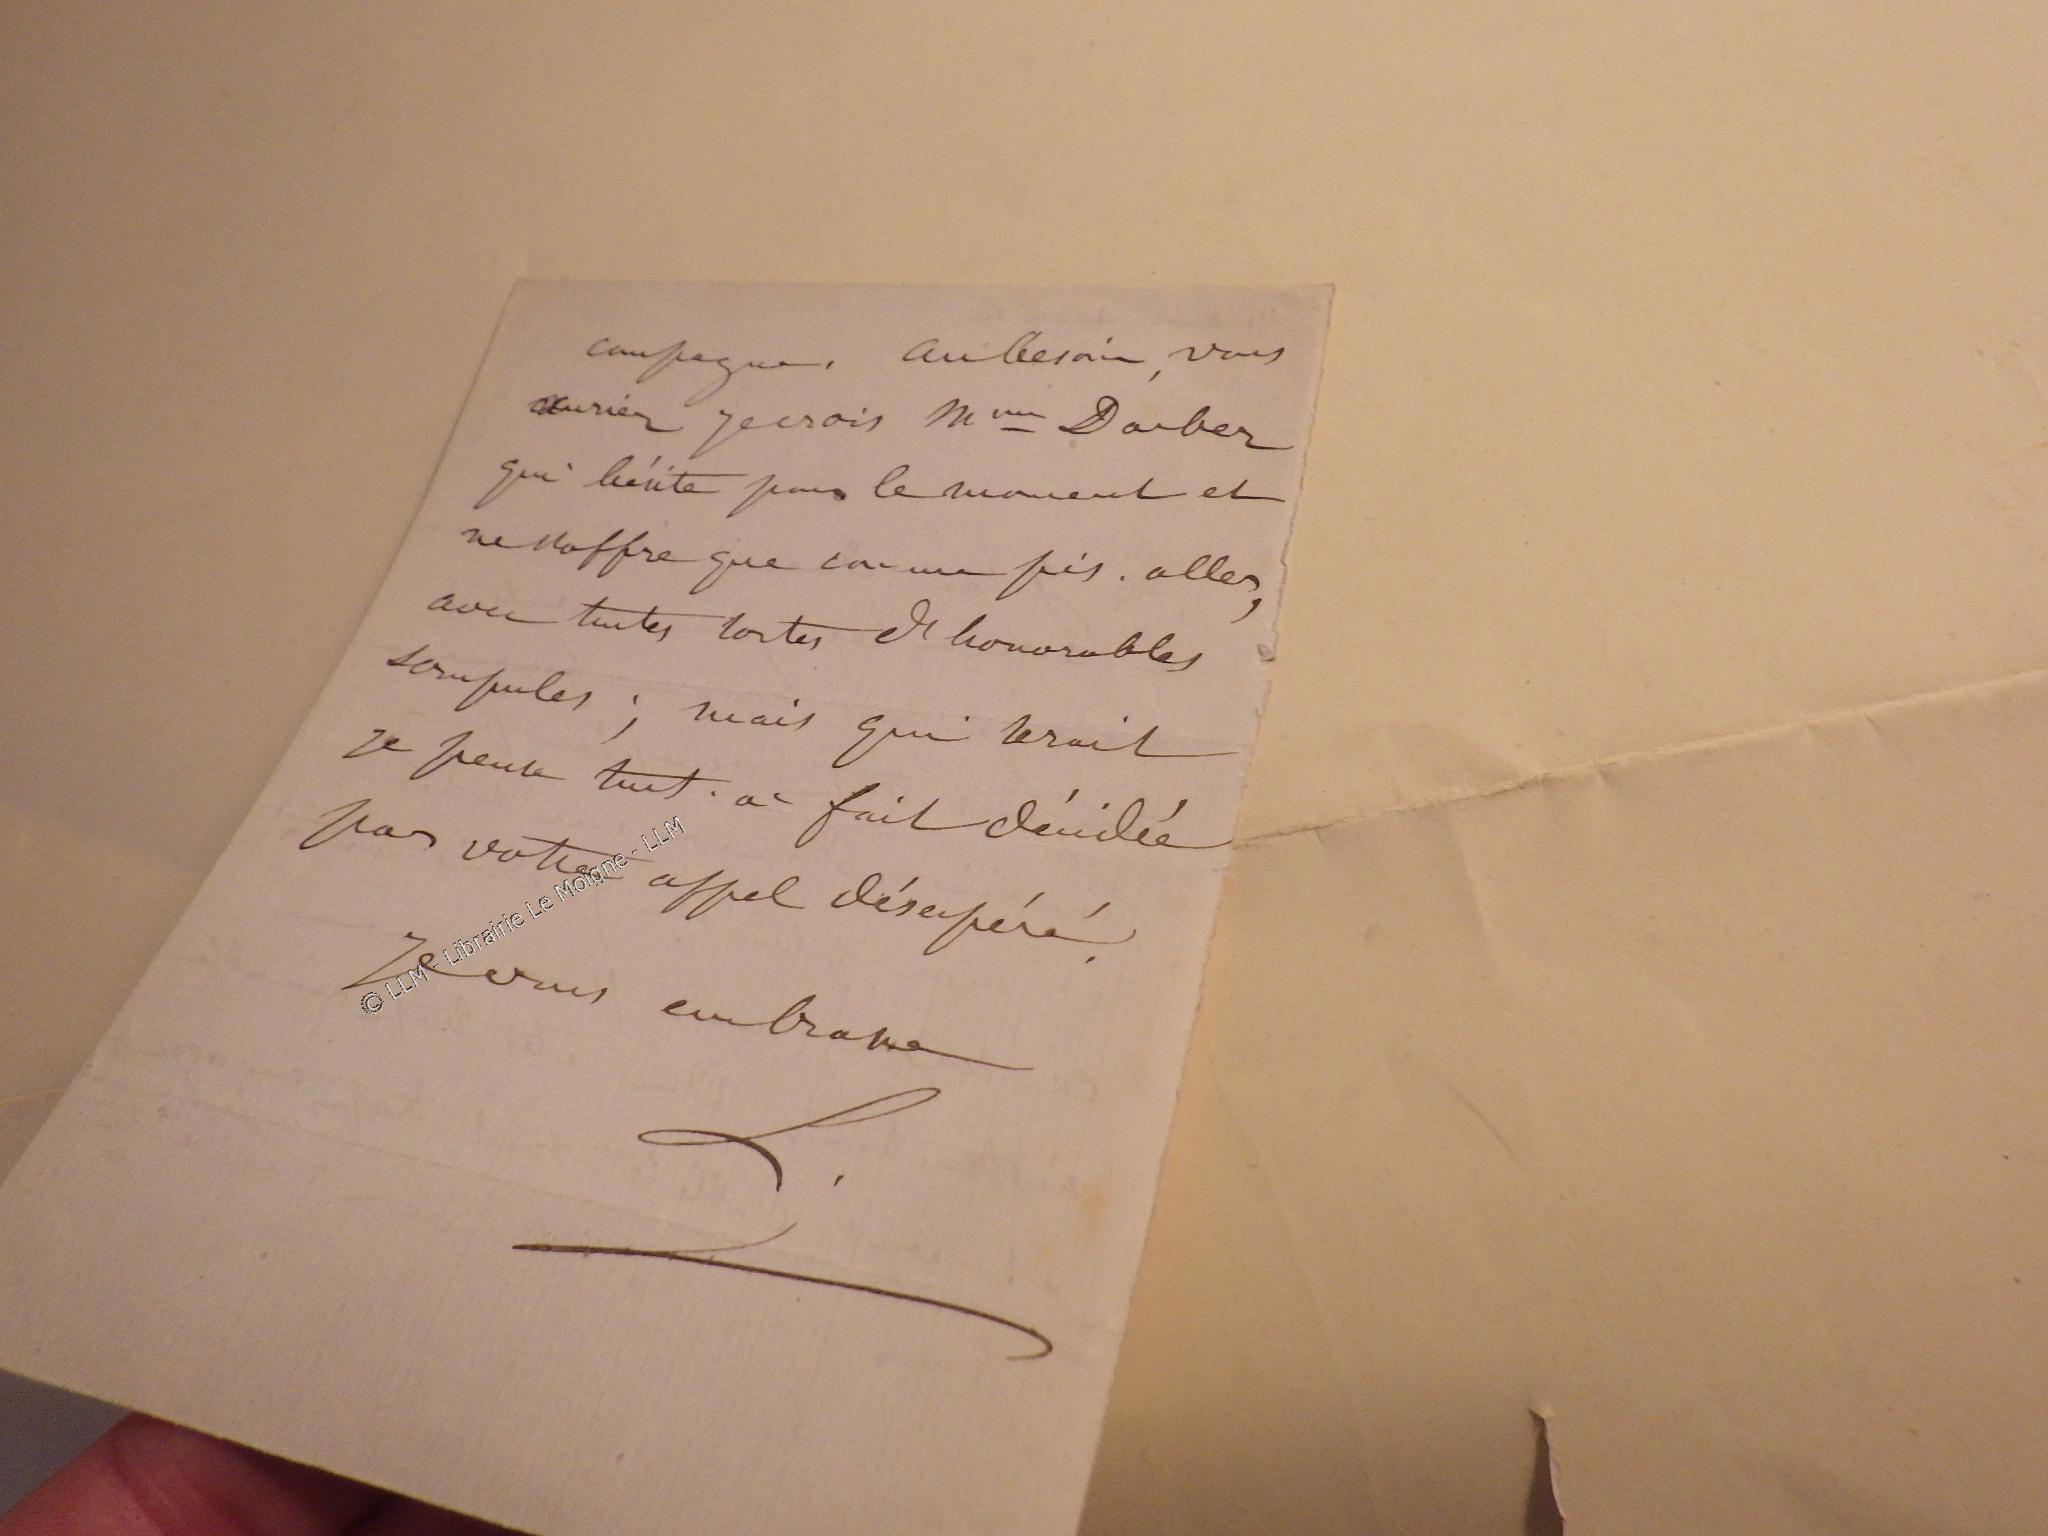 campagne. Au besoin, vous
auriez je crois Mme Dauber
qui hésite pour le moment et
ne s'offre que comme pis. aller,
avec toutes sortes d'honorables
scrupules ; mais qui serait
je pense tout. à fait décidée
par votre appel désespéré.
Je vous embrasse
L.
© LLM - Librairie Le Moigne - LLM